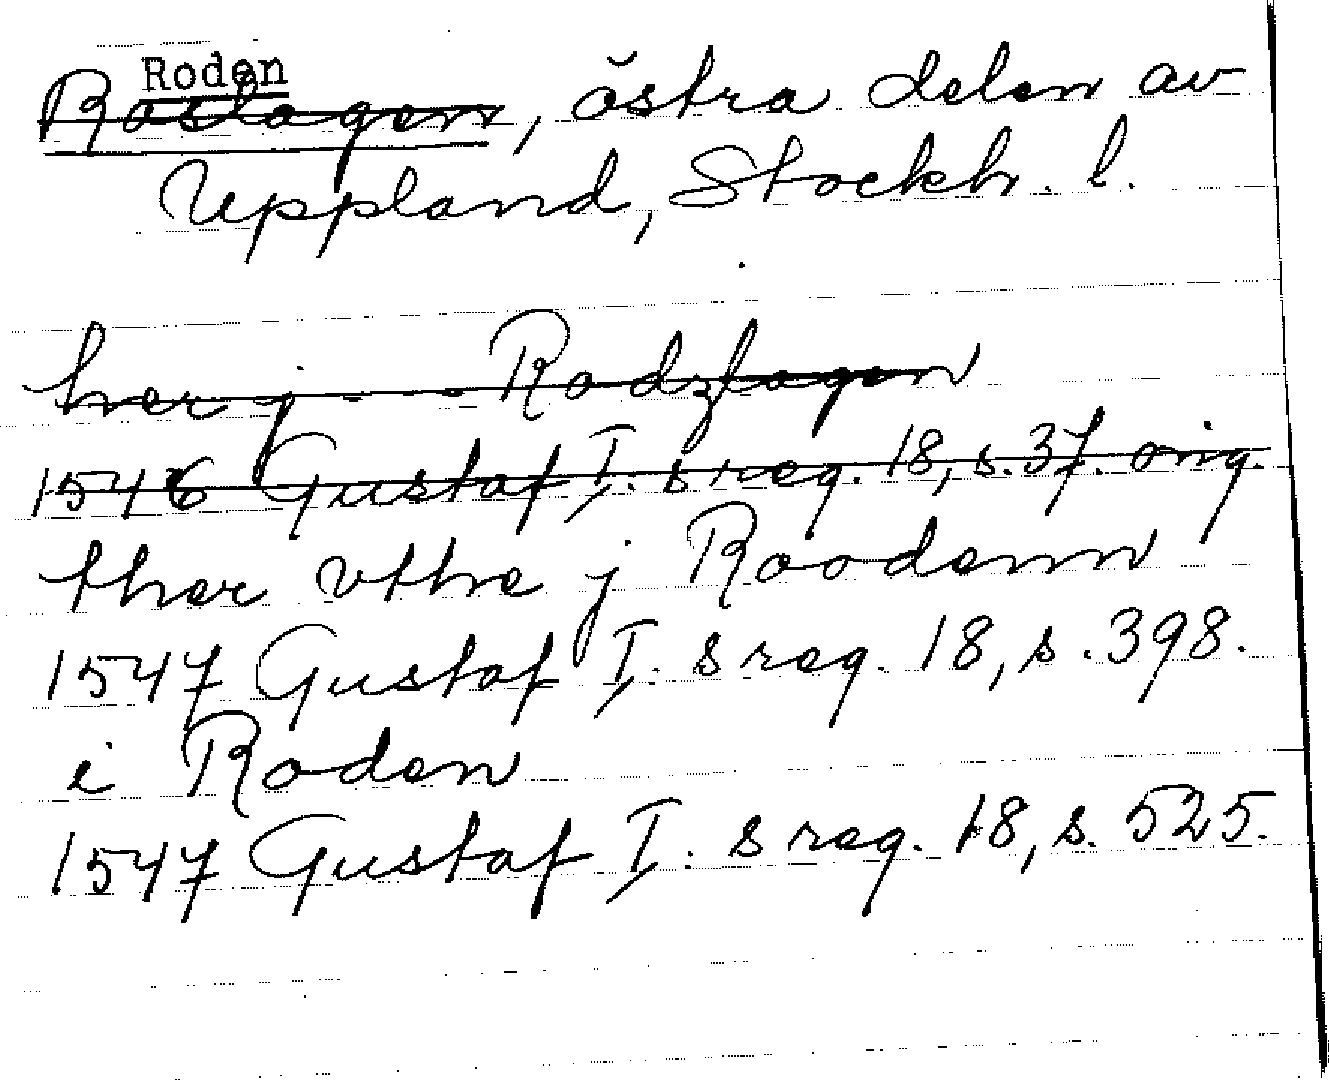 Roden
Roslagen, östra delen av
Uppland, Stockh. l.
her j - - Rodzlagen
1546 Gustaf I. s reg. 18, s. 37. orig.
ther vthe j Roodenn
1547 Gustaf I. s reg. 18, s. 398.
i Roden
1547 Gustaf I. s reg. 18, s. 525.